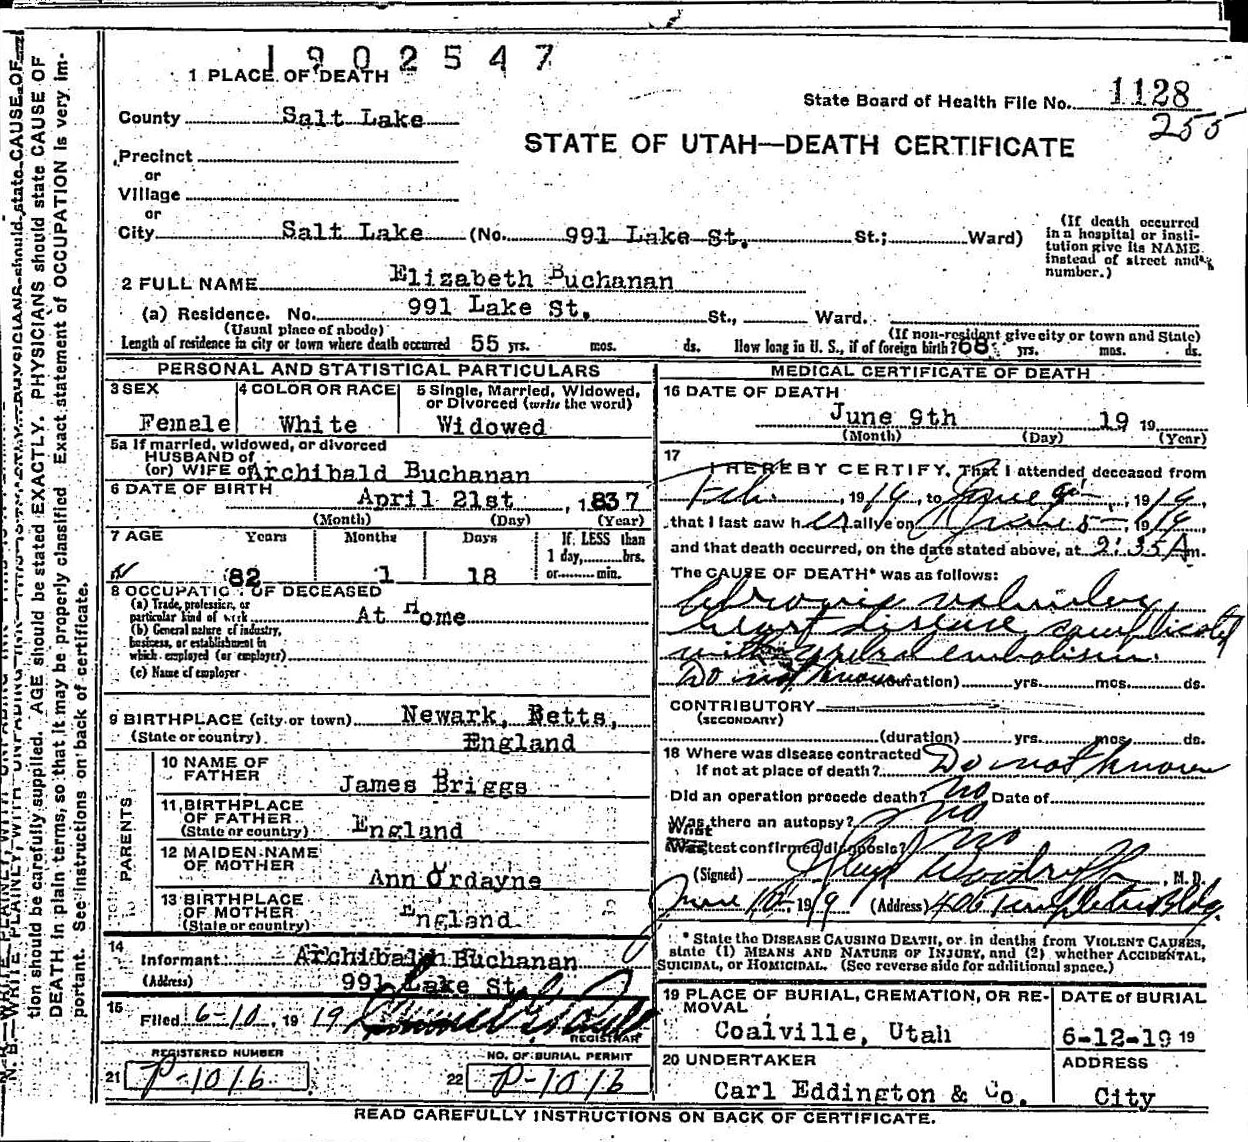 1902547
1 PLACE OF DEATH
State Board of Health File No. 1128
255
County Salt Lake
STATE OF UTAH—DEATH CERTIFICATE
Precinct
or
Village
or
City Salt Lake (No. 991 Lake St. St.; Ward)
(If death occurred in a hospital or institution give its NAME instead of street and number.)
2 FULL NAME Elizabeth Buchanan
(a) Residence. No. 991 Lake St. St., Ward.
(Usual place of abode) (If non-resident give city or town and State)
Length of residence in city or town where death occurred 55 yrs. mos. ds. How long in U. S., if of foreign birth? 68 yrs. mos. ds.
PERSONAL AND STATISTICAL PARTICULARS
3 SEX
Female
4 COLOR OR RACE
White
5 Single, Married, Widowed, or Divorced (write the word)
Widowed
5a If married, widowed, or divorced
HUSBAND of
(or) WIFE of Archibald Buchanan
6 DATE OF BIRTH
April 21st, 1837
(Month) (Day) (Year)
7 AGE Years Months Days If LESS than
1 day, hrs.
82 1 18 or min.
8 OCCUPATION OF DECEASED
(a) Trade, profession, or
particular kind of work At Home
(b) General nature of industry,
business, or establishment in
which employed (or employer)
(c) Name of employer
9 BIRTHPLACE (city or town) Newark, Betts,
(State or country) England
PARENTS
10 NAME OF
FATHER James Briggs
11 BIRTHPLACE
OF FATHER
(State or country) England
12 MAIDEN NAME
OF MOTHER Ann Ordayne
13 BIRTHPLACE
OF MOTHER
(State or country) England
14
Informant Archibald Buchanan
(Address) 991 Lake St.
15
Filed 6-10, 1919
REGISTRAR
REGISTERED NUMBER
21 P-1016
NO. OF BURIAL PERMIT
22 P-1016
MEDICAL CERTIFICATE OF DEATH
16 DATE OF DEATH
June 9th 19 19
(Month) (Day) (Year)
17
I HEREBY CERTIFY, That I attended deceased from
Feb. , 1919, to June 9th, 1919,
that I last saw her alive on June 5, 1919,
and that death occurred, on the date stated above, at 2:35 A m.
The CAUSE OF DEATH* was as follows:
Chronic valvular
heart disease, complicated
with cerebral embolism.
Do not know (duration) yrs. mos. ds.
CONTRIBUTORY
(SECONDARY)
(duration) yrs. mos. ds.
18 Where was disease contracted
If not at place of death? Do not know
Did an operation precede death? No Date of
Was there an autopsy? No
What test confirmed diagnosis? No
(Signed) Woodruff, M. D.
June 10, 1919 (Address) 406 Templeton Bldg.
* State the DISEASE CAUSING DEATH, or in deaths from VIOLENT CAUSES,
state (1) MEANS AND NATURE OF INJURY, and (2) whether ACCIDENTAL,
SUICIDAL, or HOMICIDAL. (See reverse side for additional space.)
19 PLACE OF BURIAL, CREMATION, OR REMOVAL
Coalville, Utah
DATE of BURIAL
6-12-19 19
20 UNDERTAKER
Carl Eddington & Co.
ADDRESS
City
READ CAREFULLY INSTRUCTIONS ON BACK OF CERTIFICATE.
N. B.—WRITE PLAINLY, WITH UNFADING INK
tion should be carefully supplied. AGE should be stated EXACTLY. PHYSICIANS should state CAUSE OF
DEATH in plain terms, so that it may be properly classified. Exact statement of OCCUPATION is very im-
portant. See instructions on back of certificate.